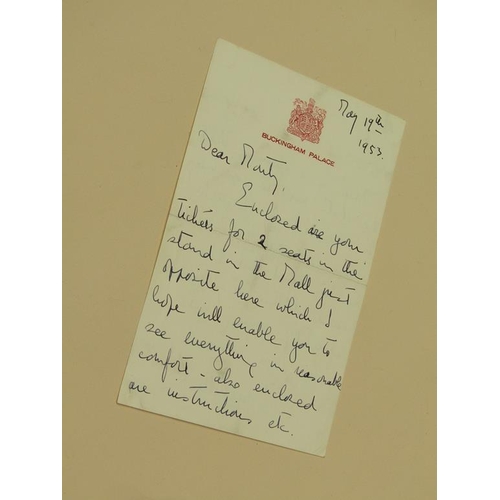 May 19th
1953.
BUCKINGHAM PALACE
Dear Monty,
Enclosed are your
tickets for 2 seats in the
stand in the Mall just
opposite here which I
hope will enable you to
see everything in reasonable
comfort - also enclosed
are instructions etc.